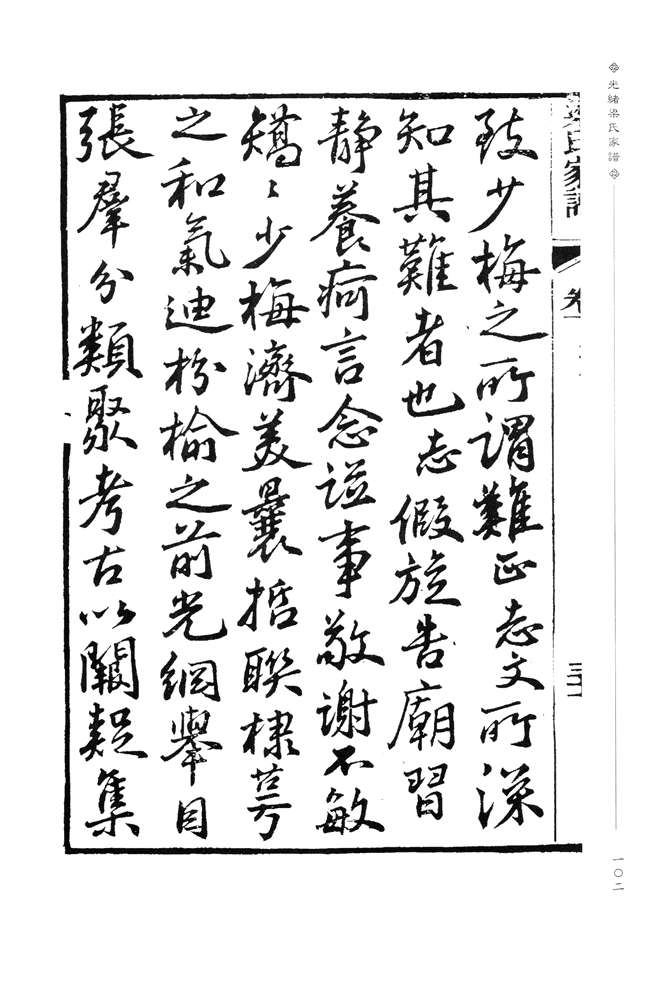 光緒梁氏家譜
梁氏家譜
卷一
一〇二
致少梅之所謂難正志文所深
知其難者也志假旋告廟習
静養疴言念茲事敬謝不敏
矯〻少梅濟美曩哲聯棣萼
之和氣迪枌榆之前光綱舉目
張羣分類聚考古以闕疑集